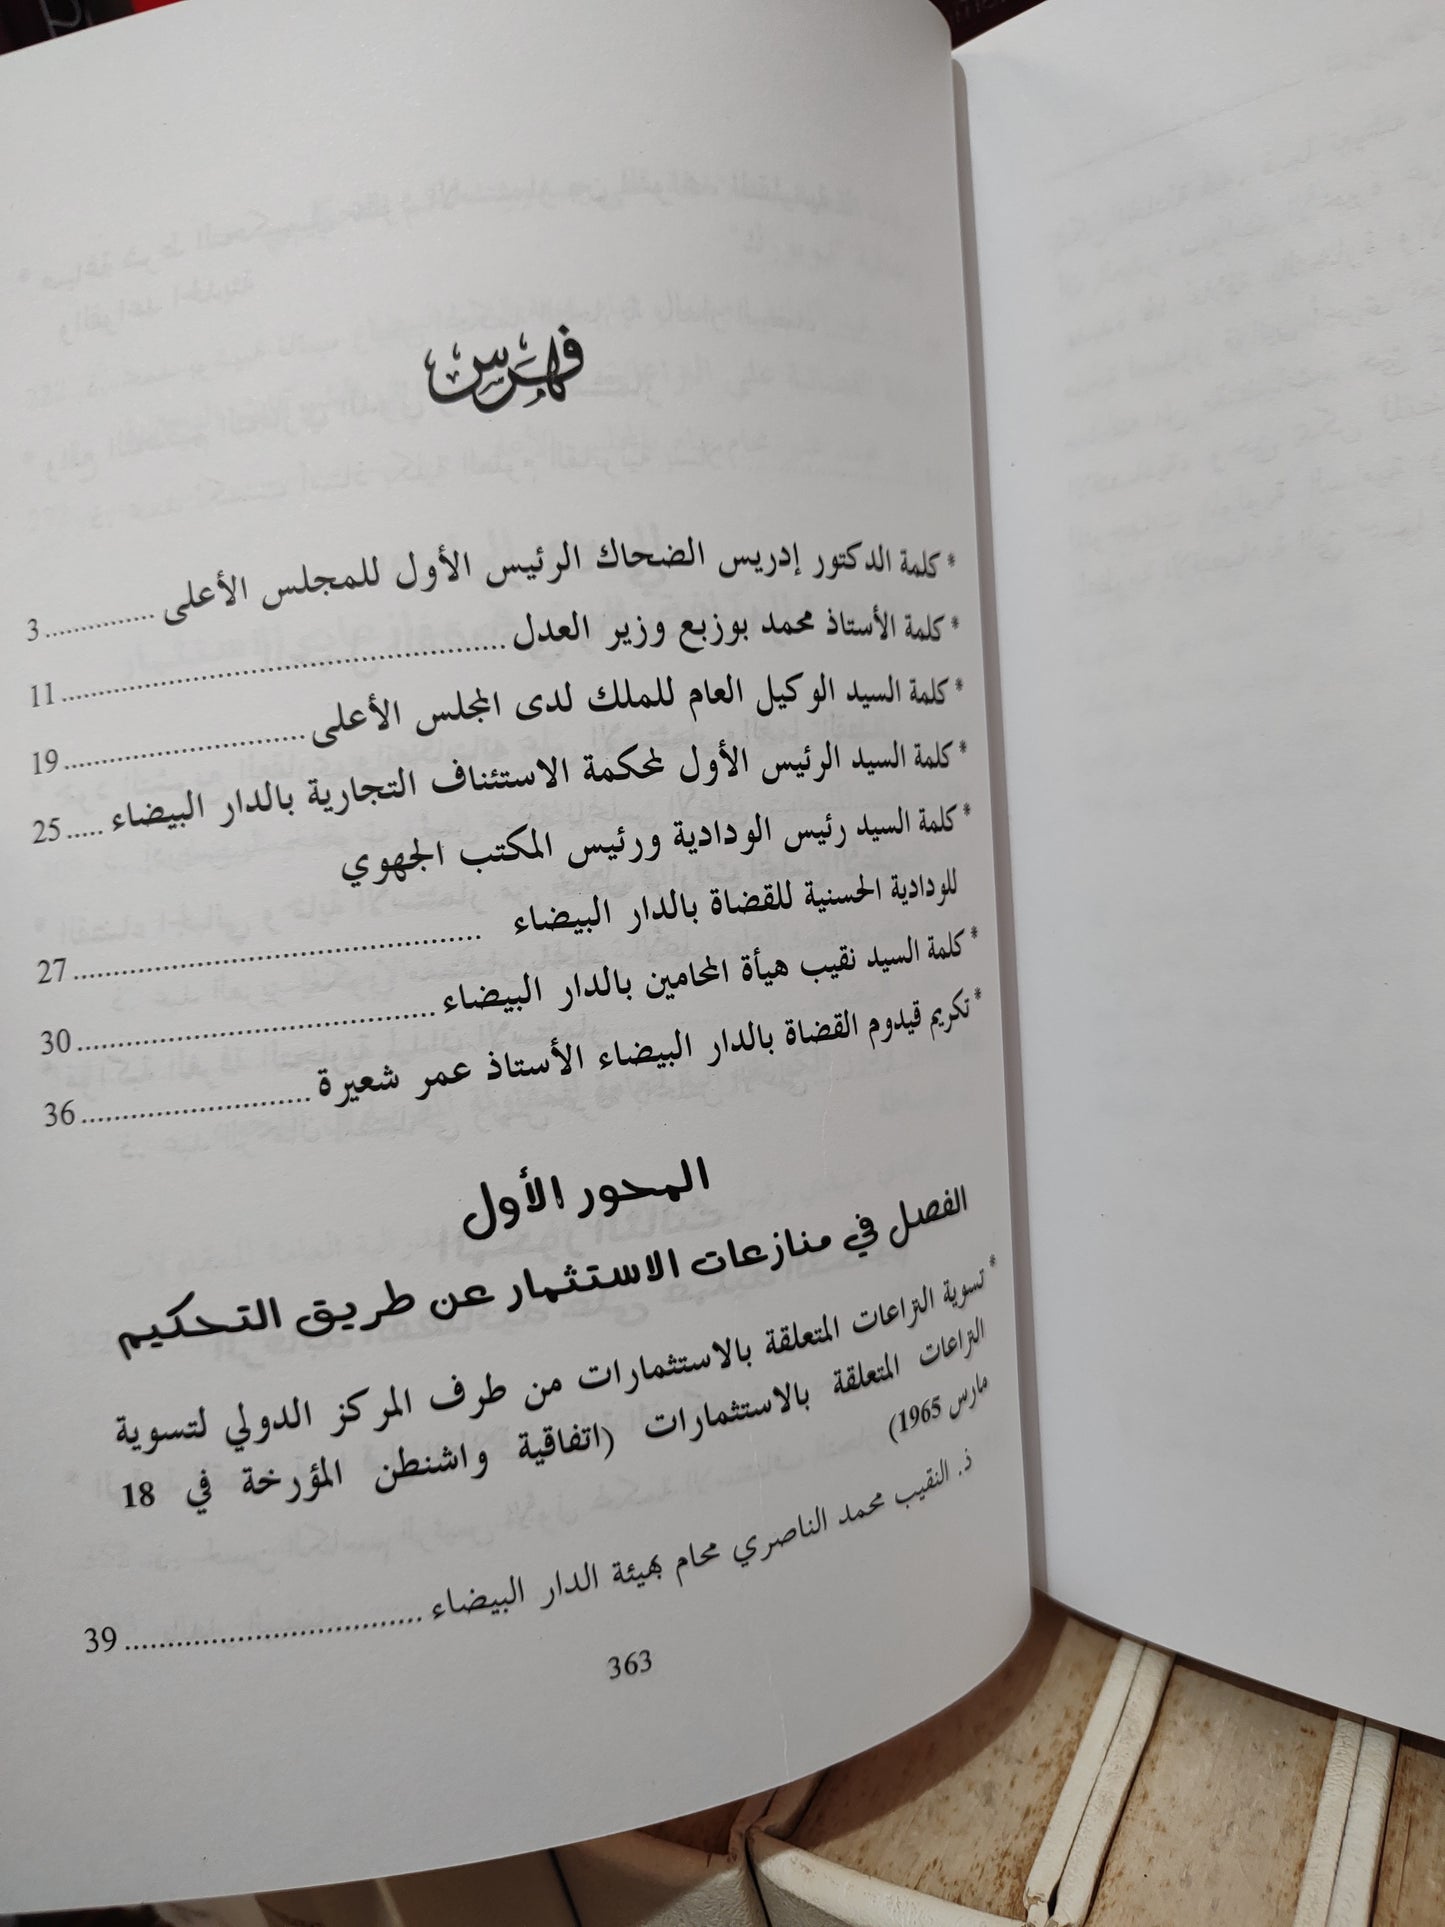 فهرس
* كلمة الدكتور إدريس الضحاك الرئيس الأول للمجلس الأعلى ............... 3
* كلمة الأستاذ محمد بوزبع وزير العدل ............................................................ 11
* كلمة السيد الوكيل العام للملك لدى المجلس الأعلى .................................. 19
* كلمة السيد الرئيس الأول لمحكمة الاستئناف التجارية بالدار البيضاء ..... 25
* كلمة السيد رئيس الودادية ورئيس المكتب الجهوي
للودادية الحسنية للقضاة بالدار البيضاء ....................................................... 27
* كلمة السيد نقيب هيأة المحامين بالدار البيضاء ................................................ 30
* تكريم قيدوم القضاة بالدار البيضاء الأستاذ عمر شعيرة ............................... 36
المحور الأول
الفصل في منازعات الاستثمار عن طريق التحكيم
* تسوية النزاعات المتعلقة بالاستثمارات من طرف المركز الدولي لتسوية
النزاعات المتعلقة بالاستثمارات (اتفاقية واشنطن المؤرخة في 18
مارس 1965)
ذ. النقيب محمد الناصري محام بهيئة الدار البيضاء ........................................ 39
363